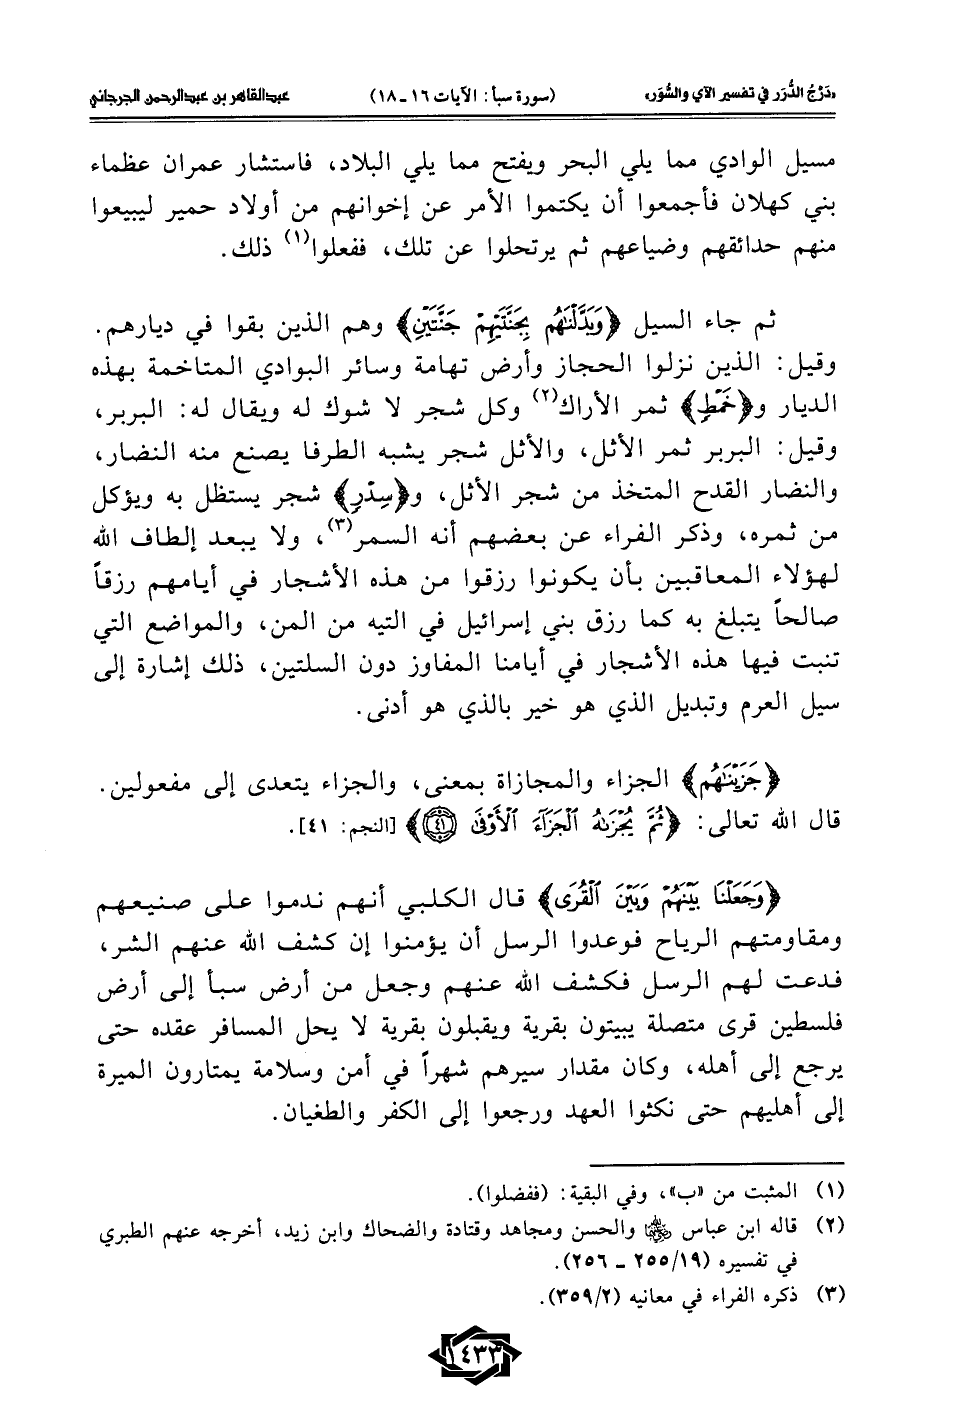 «دَرْجُ الدُّرَر في تفسير الآي والسُّوَر» (سورة سبأ: الآيات ١٦ ـ ١٨) عبدالقاهر بن عبدالرحمن الجرجاني
مسيل الوادي مما يلي البحر ويفتح مما يلي البلاد، فاستشار عمران عظماء
بني كهلان فأجمعوا أن يكتموا الأمر عن إخوانهم من أولاد حمير ليبيعوا
منهم حدائقهم وضياعهم ثم يرتحلوا عن تلك، ففعلوا(١) ذلك.
ثم جاء السيل ﴿وَبَدَّلْنَٰهُم بِجَنَّتَيْهِمْ جَنَّتَيْنِ﴾ وهم الذين بقوا في ديارهم.
وقيل: الذين نزلوا الحجاز وأرض تهامة وسائر البوادي المتاخمة بهذه
الديار و﴿خَمْطٍ﴾ ثمر الأراك(٢) وكل شجر لا شوك له ويقال له: البربر،
وقيل: البربر ثمر الأثل، والأثل شجر يشبه الطرفا يصنع منه النضار،
والنضار القدح المتخذ من شجر الأثل، و﴿سِدْرٍ﴾ شجر يستظل به ويؤكل
من ثمره، وذكر الفراء عن بعضهم أنه السمر(٣)، ولا يبعد إلطاف الله
لهؤلاء المعاقبين بأن يكونوا رزقوا من هذه الأشجار في أيامهم رزقاً
صالحاً يتبلغ به كما رزق بني إسرائيل في التيه من المن، والمواضع التي
تنبت فيها هذه الأشجار في أيامنا المفاوز دون السلتين، ذلك إشارة إلى
سيل العرم وتبديل الذي هو خير بالذي هو أدنى.
﴿جَزَيْنَٰهُم﴾ الجزاء والمجازاة بمعنى، والجزاء يتعدى إلى مفعولين.
قال الله تعالى: ﴿ثُمَّ يُجْزَىٰهُ ٱلْجَزَآءَ ٱلْأَوْفَىٰ ٤١﴾ [النجم: ٤١].
﴿وَجَعَلْنَا بَيْنَهُمْ وَبَيْنَ ٱلْقُرَى﴾ قال الكلبي أنهم ندموا على صنيعهم
ومقاومتهم الرياح فوعدوا الرسل أن يؤمنوا إن كشف الله عنهم الشر،
فدعت لهم الرسل فكشف الله عنهم وجعل من أرض سبأ إلى أرض
فلسطين قرى متصلة يبيتون بقرية ويقبلون بقرية لا يحل المسافر عقده حتى
يرجع إلى أهله، وكان مقدار سيرهم شهراً في أمن وسلامة يمتارون الميرة
إلى أهليهم حتى نكثوا العهد ورجعوا إلى الكفر والطغيان.
(١) المثبت من «ب»، وفي البقية: (ففضلوا).
(٢) قاله ابن عباس رضي الله عنهما والحسن ومجاهد وقتادة والضحاك وابن زيد، أخرجه عنهم الطبري
في تفسيره (١٩/٢٥٥ ـ ٢٥٦).
(٣) ذكره الفراء في معانيه (٢/٣٥٩).
١٤٣٣